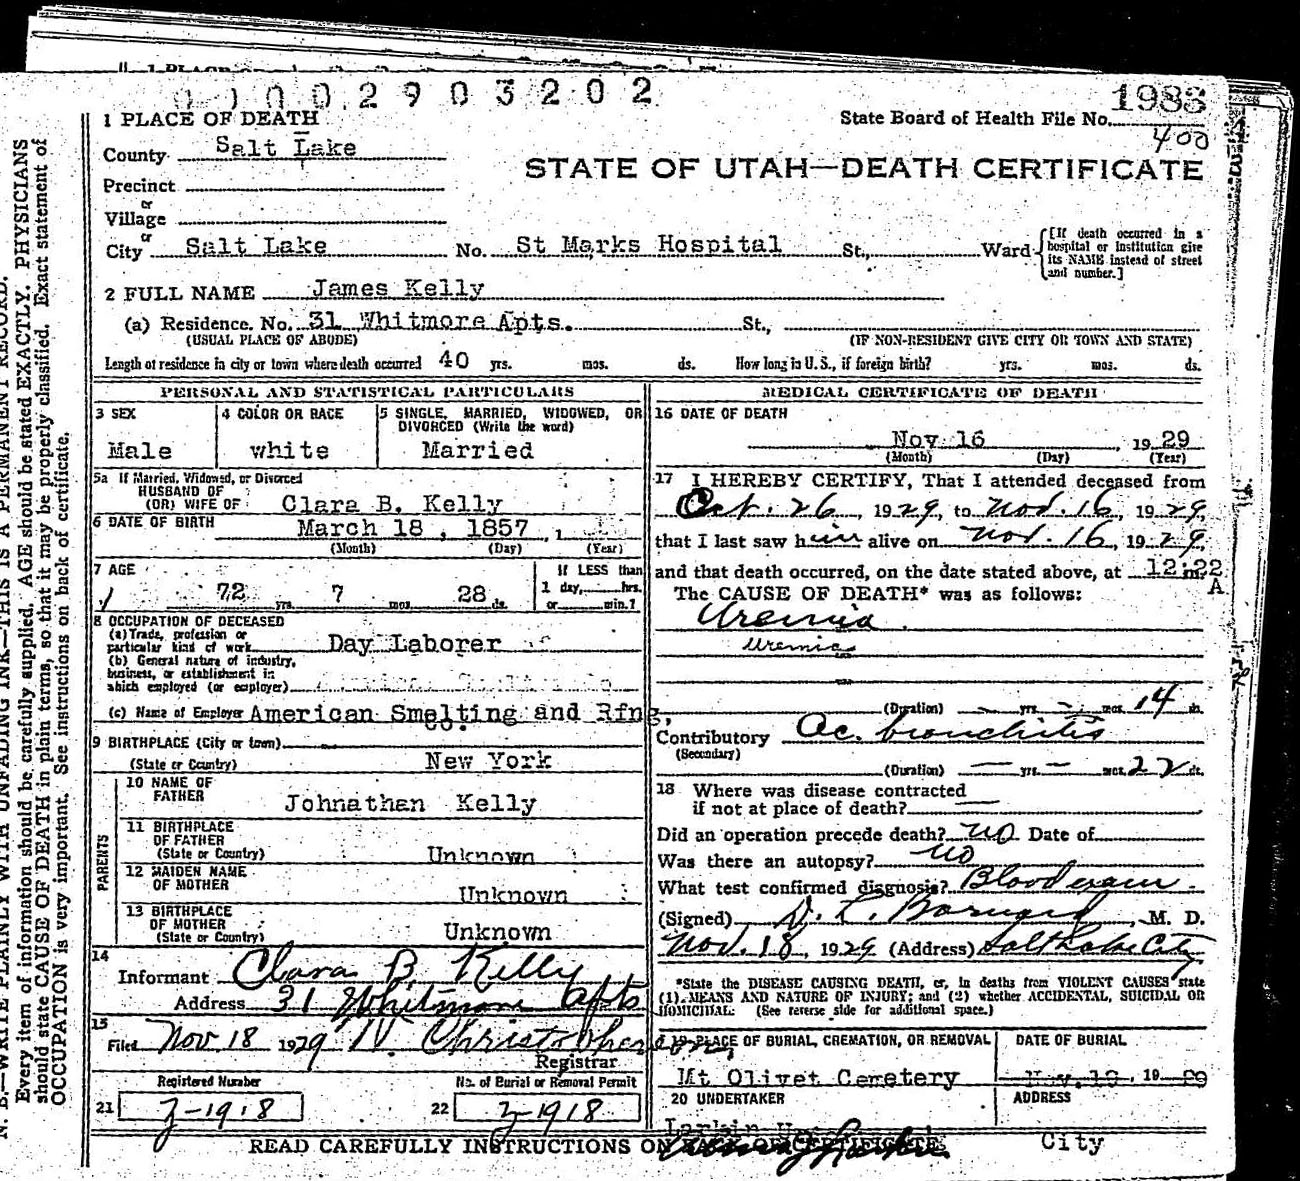 00002903202
1983
1 PLACE OF DEATH
State Board of Health File No.
400
County Salt Lake
STATE OF UTAH—DEATH CERTIFICATE
Precinct
or
Village
or
City Salt Lake No. St Marks Hospital St., Ward [If death occurred in a hospital or institution give its NAME instead of street and number.]
2 FULL NAME James Kelly
(a) Residence. No. 31 Whitmore Apts. St.,
(USUAL PLACE OF ABODE) (IF NON-RESIDENT GIVE CITY OR TOWN AND STATE)
Length of residence in city or town where death occurred 40 yrs. mos. ds. How long in U. S., if foreign birth? yrs. mos. ds.
PERSONAL AND STATISTICAL PARTICULARS
3 SEX
Male
4 COLOR OR RACE
white
5 SINGLE, MARRIED, WIDOWED, OR
DIVORCED (Write the word)
Married
5a If Married, Widowed, or Divorced
HUSBAND OF
(OR) WIFE OF Clara B. Kelly
6 DATE OF BIRTH March 18, 1857, 1
(Month) (Day) (Year)
7 AGE
72 yrs. 7 mos. 28 ds.
If LESS than
1 day, hrs.
or min.?
8 OCCUPATION OF DECEASED
(a) Trade, profession or
particular kind of work Day Laborer
(b) General nature of industry,
business, or establishment in
which employed (or employer)
(c) Name of Employer American Smelting and Rfng,
Co.
9 BIRTHPLACE (City or town)
(State or Country) New York
PARENTS
10 NAME OF
FATHER Johnathan Kelly
11 BIRTHPLACE
OF FATHER
(State or Country) Unknown
12 MAIDEN NAME
OF MOTHER Unknown
13 BIRTHPLACE
OF MOTHER
(State or Country) Unknown
14
Informant Clara B. Kelly
Address 31 Whitmore Apts
15
Filed Nov 18 1929 N. Christopherson,
Registrar
Registered Number
21 Z-1918
No. of Burial or Removal Permit
22 Z-1918
MEDICAL CERTIFICATE OF DEATH
16 DATE OF DEATH
Nov 16, 1929
(Month) (Day) (Year)
17 I HEREBY CERTIFY, That I attended deceased from
Oct. 26, 1929, to Nov. 16, 1929,
that I last saw him alive on Nov. 16, 1929,
and that death occurred, on the date stated above, at 12:22 m.
A
The CAUSE OF DEATH* was as follows:
Uremia
Uremia
(Duration) — yrs. — mos. 14 ds.
Contributory Ac. bronchitis
(Secondary)
(Duration) — yrs. — mos. 22 ds.
18 Where was disease contracted
if not at place of death? —
Did an operation precede death? no Date of
Was there an autopsy? no
What test confirmed diagnosis? Blood exam
(Signed) M. D.
Nov. 18, 1929 (Address) Salt Lake City
*State the DISEASE CAUSING DEATH, or, in deaths from VIOLENT CAUSES state
(1) MEANS AND NATURE OF INJURY; and (2) whether ACCIDENTAL, SUICIDAL OR
HOMICIDAL: (See reverse side for additional space.)
19 PLACE OF BURIAL, CREMATION, OR REMOVAL
Mt Olivet Cemetery
DATE OF BURIAL
Nov. 19, 1929
20 UNDERTAKER
Larkin
ADDRESS
City
READ CAREFULLY INSTRUCTIONS ON BACK OF CERTIFICATE
N. B.—WRITE PLAINLY WITH UNFADING INK—THIS IS A PERMANENT RECORD.
Every item of information should be carefully supplied. AGE should be stated EXACTLY. PHYSICIANS
should state CAUSE OF DEATH in plain terms, so that it may be properly classified. Exact statement of
OCCUPATION is very important. See instructions on back of certificate.